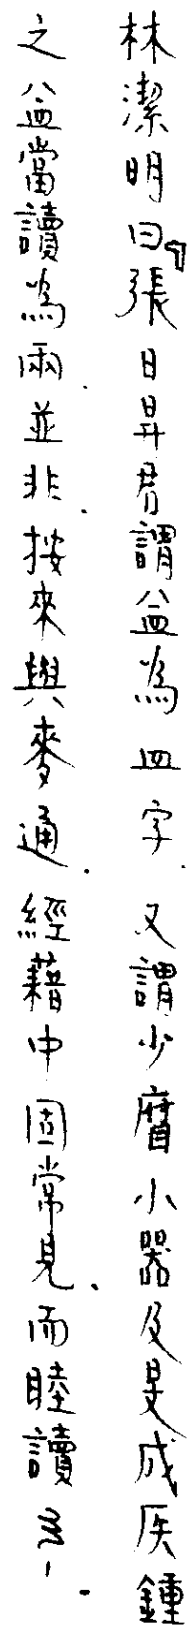 林潔明曰『張日昇君謂益為皿字．又謂少𢉩小器及旻成厌鍾
之益當讀為兩．並非．按來與麥通．經藉中固常見、而睦讀